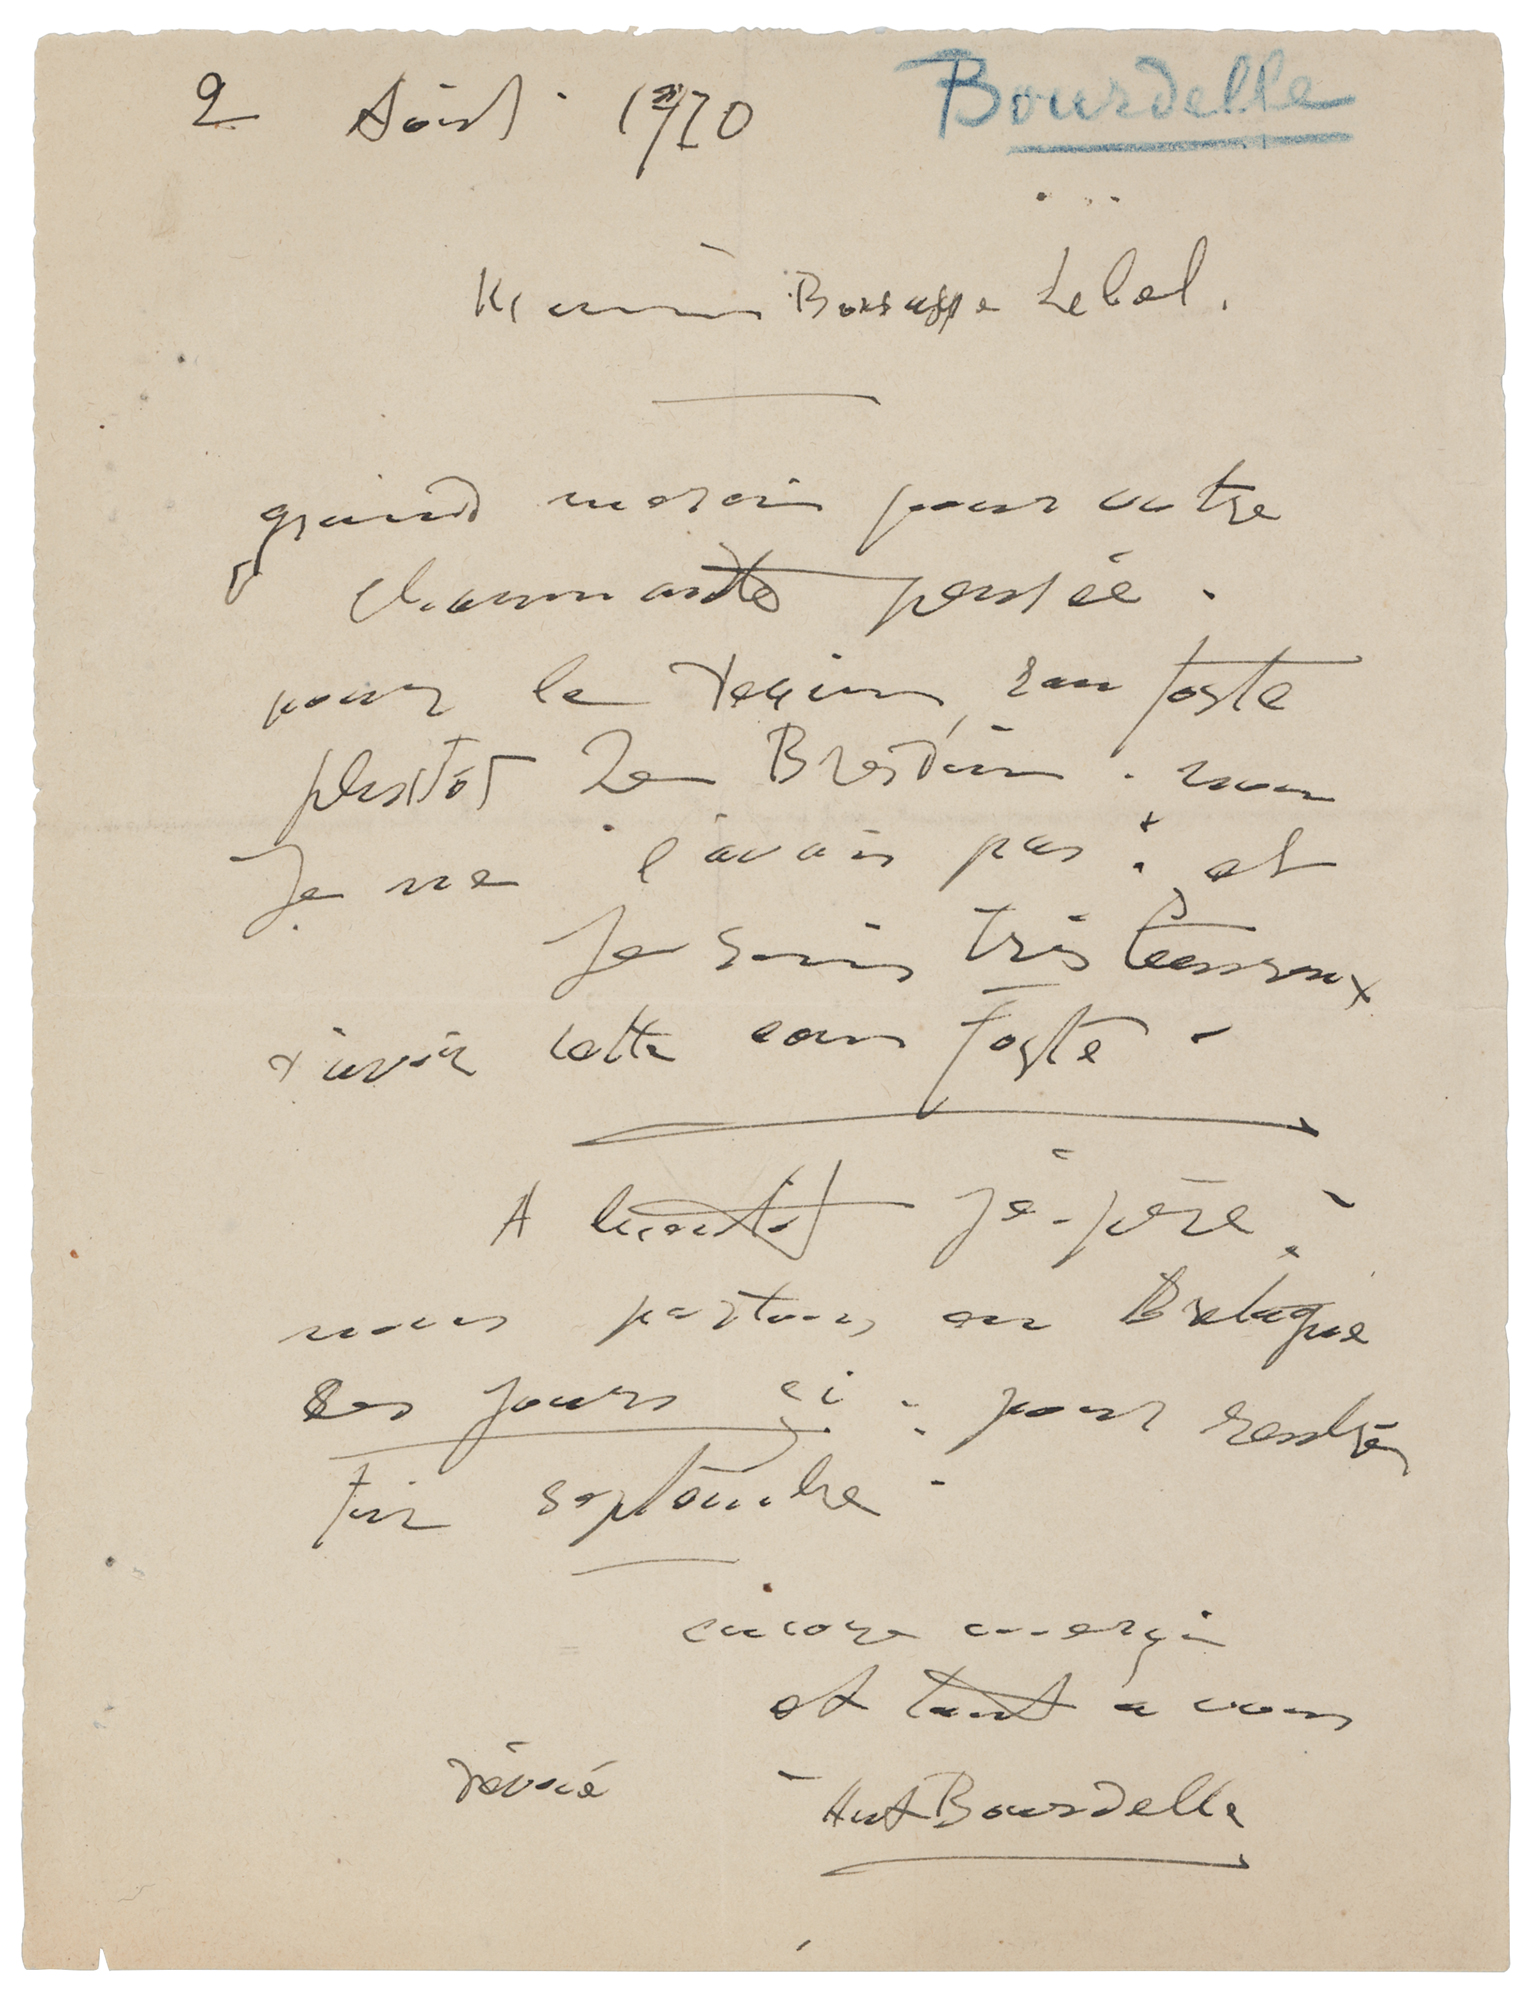 2 Août 1920
Bourdelle
Lebel.
grand merci pour votre
charmante pensée.
pour le dessin, eau forte
plustôt de Bresdin. non
Je ne l'avais pas : et
Je suis très heureux
d'avoir cette eau forte -
A bientôt j'espère
nous partons en Bretagne
ces jours ci : pour rentrer
Fin septembre -
encore merci
et tout a vous
dévoué
Ant Bourdelle